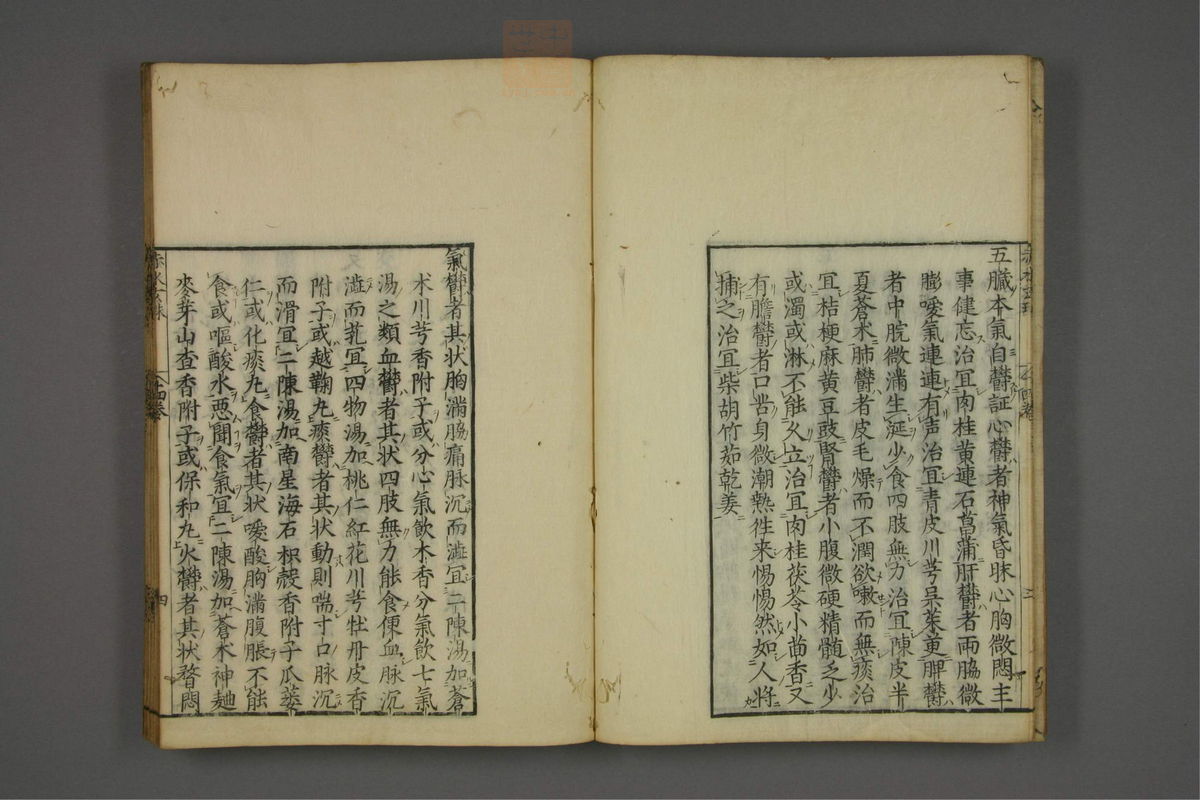 五臓本氣自鬱証心鬱者神氣昏昧心胸微悶主
事健忘治冝肉桂黄連石菖蒲肝鬱者兩脇微
膨噯氣連連有声治冝青皮川芎呉茱萸脾鬱
者中脘微滿生涎少食四肢無力治冝陳皮半
夏蒼朮肺鬱者皮毛燥而不潤欲嗽而無痰治
冝桔梗麻黄豆豉腎鬱者小腹微硬精髓乏少
或濁或淋不能久立治冝肉桂茯苓小茴香又
有膽鬱者口苦身微潮熱徃来惕惕然如人將
捕之治冝柴胡竹茹乾姜
氣鬱者其状胸滿脇痛脉沉而澁冝二陳湯加蒼
朮川芎香附子或分心氣飲木香分氣飲七氣
湯之類血鬱者其状四肢無力能食便血脉沉
澁而芤冝四物湯加桃仁紅花川芎牡丹皮香
附子或越鞠丸痰鬱者其状動則喘寸口脉沉
而滑冝二陳湯加南星海石枳殻香附子瓜蔞
仁或化痰丸食鬱者其状噯酸胸滿腹脹不能
食或嘔酸水悪聞食氣冝二陳湯加蒼朮神麯
麥芽山査香附子或保和丸火鬱者其状瞀悶
四